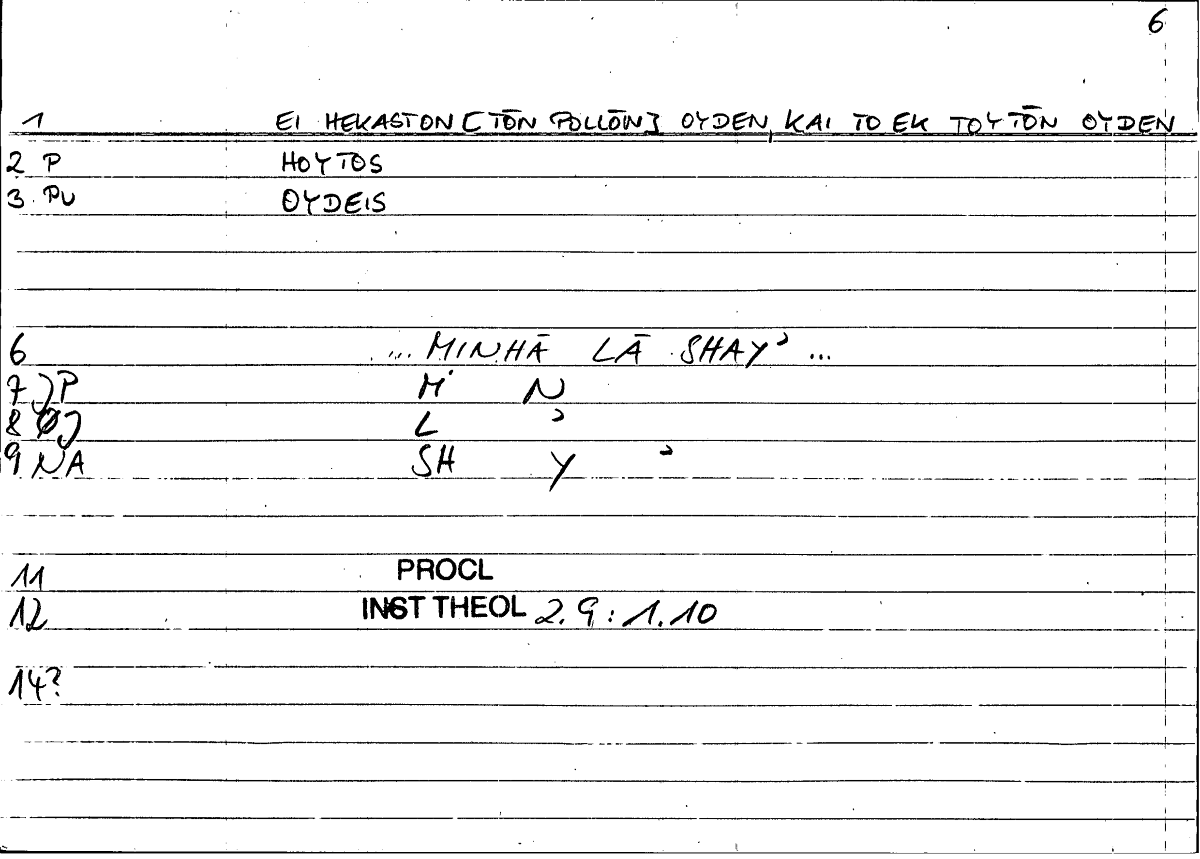 6
1 EI HEKASTON [TŌN POLLŌN] OYDEN, KAI TO EK TOYTŌN OYDEN
2 P HOYTOS
3 PU OYDEIS
6 ... MINHĀ LĀ SHAYʾ ...
7 JP M N
8 ØJ L ʾ
9 NA SH Y ʾ
11 PROCL
12 INST THEOL 2.9:1.10
14?